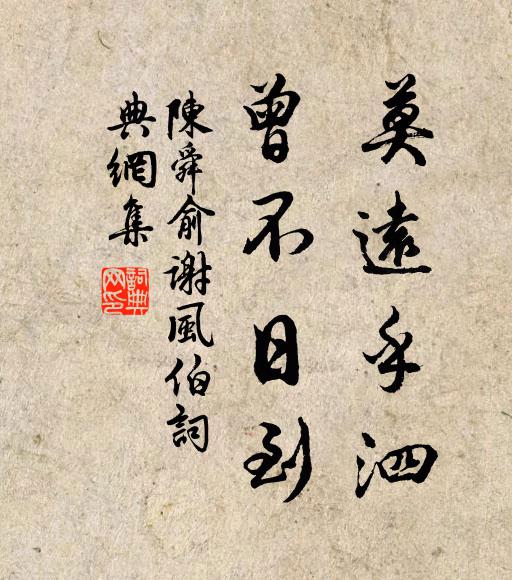 莫遠乎泗
曾不日到
陳舜俞謝風伯詞
典網集
詞典網印